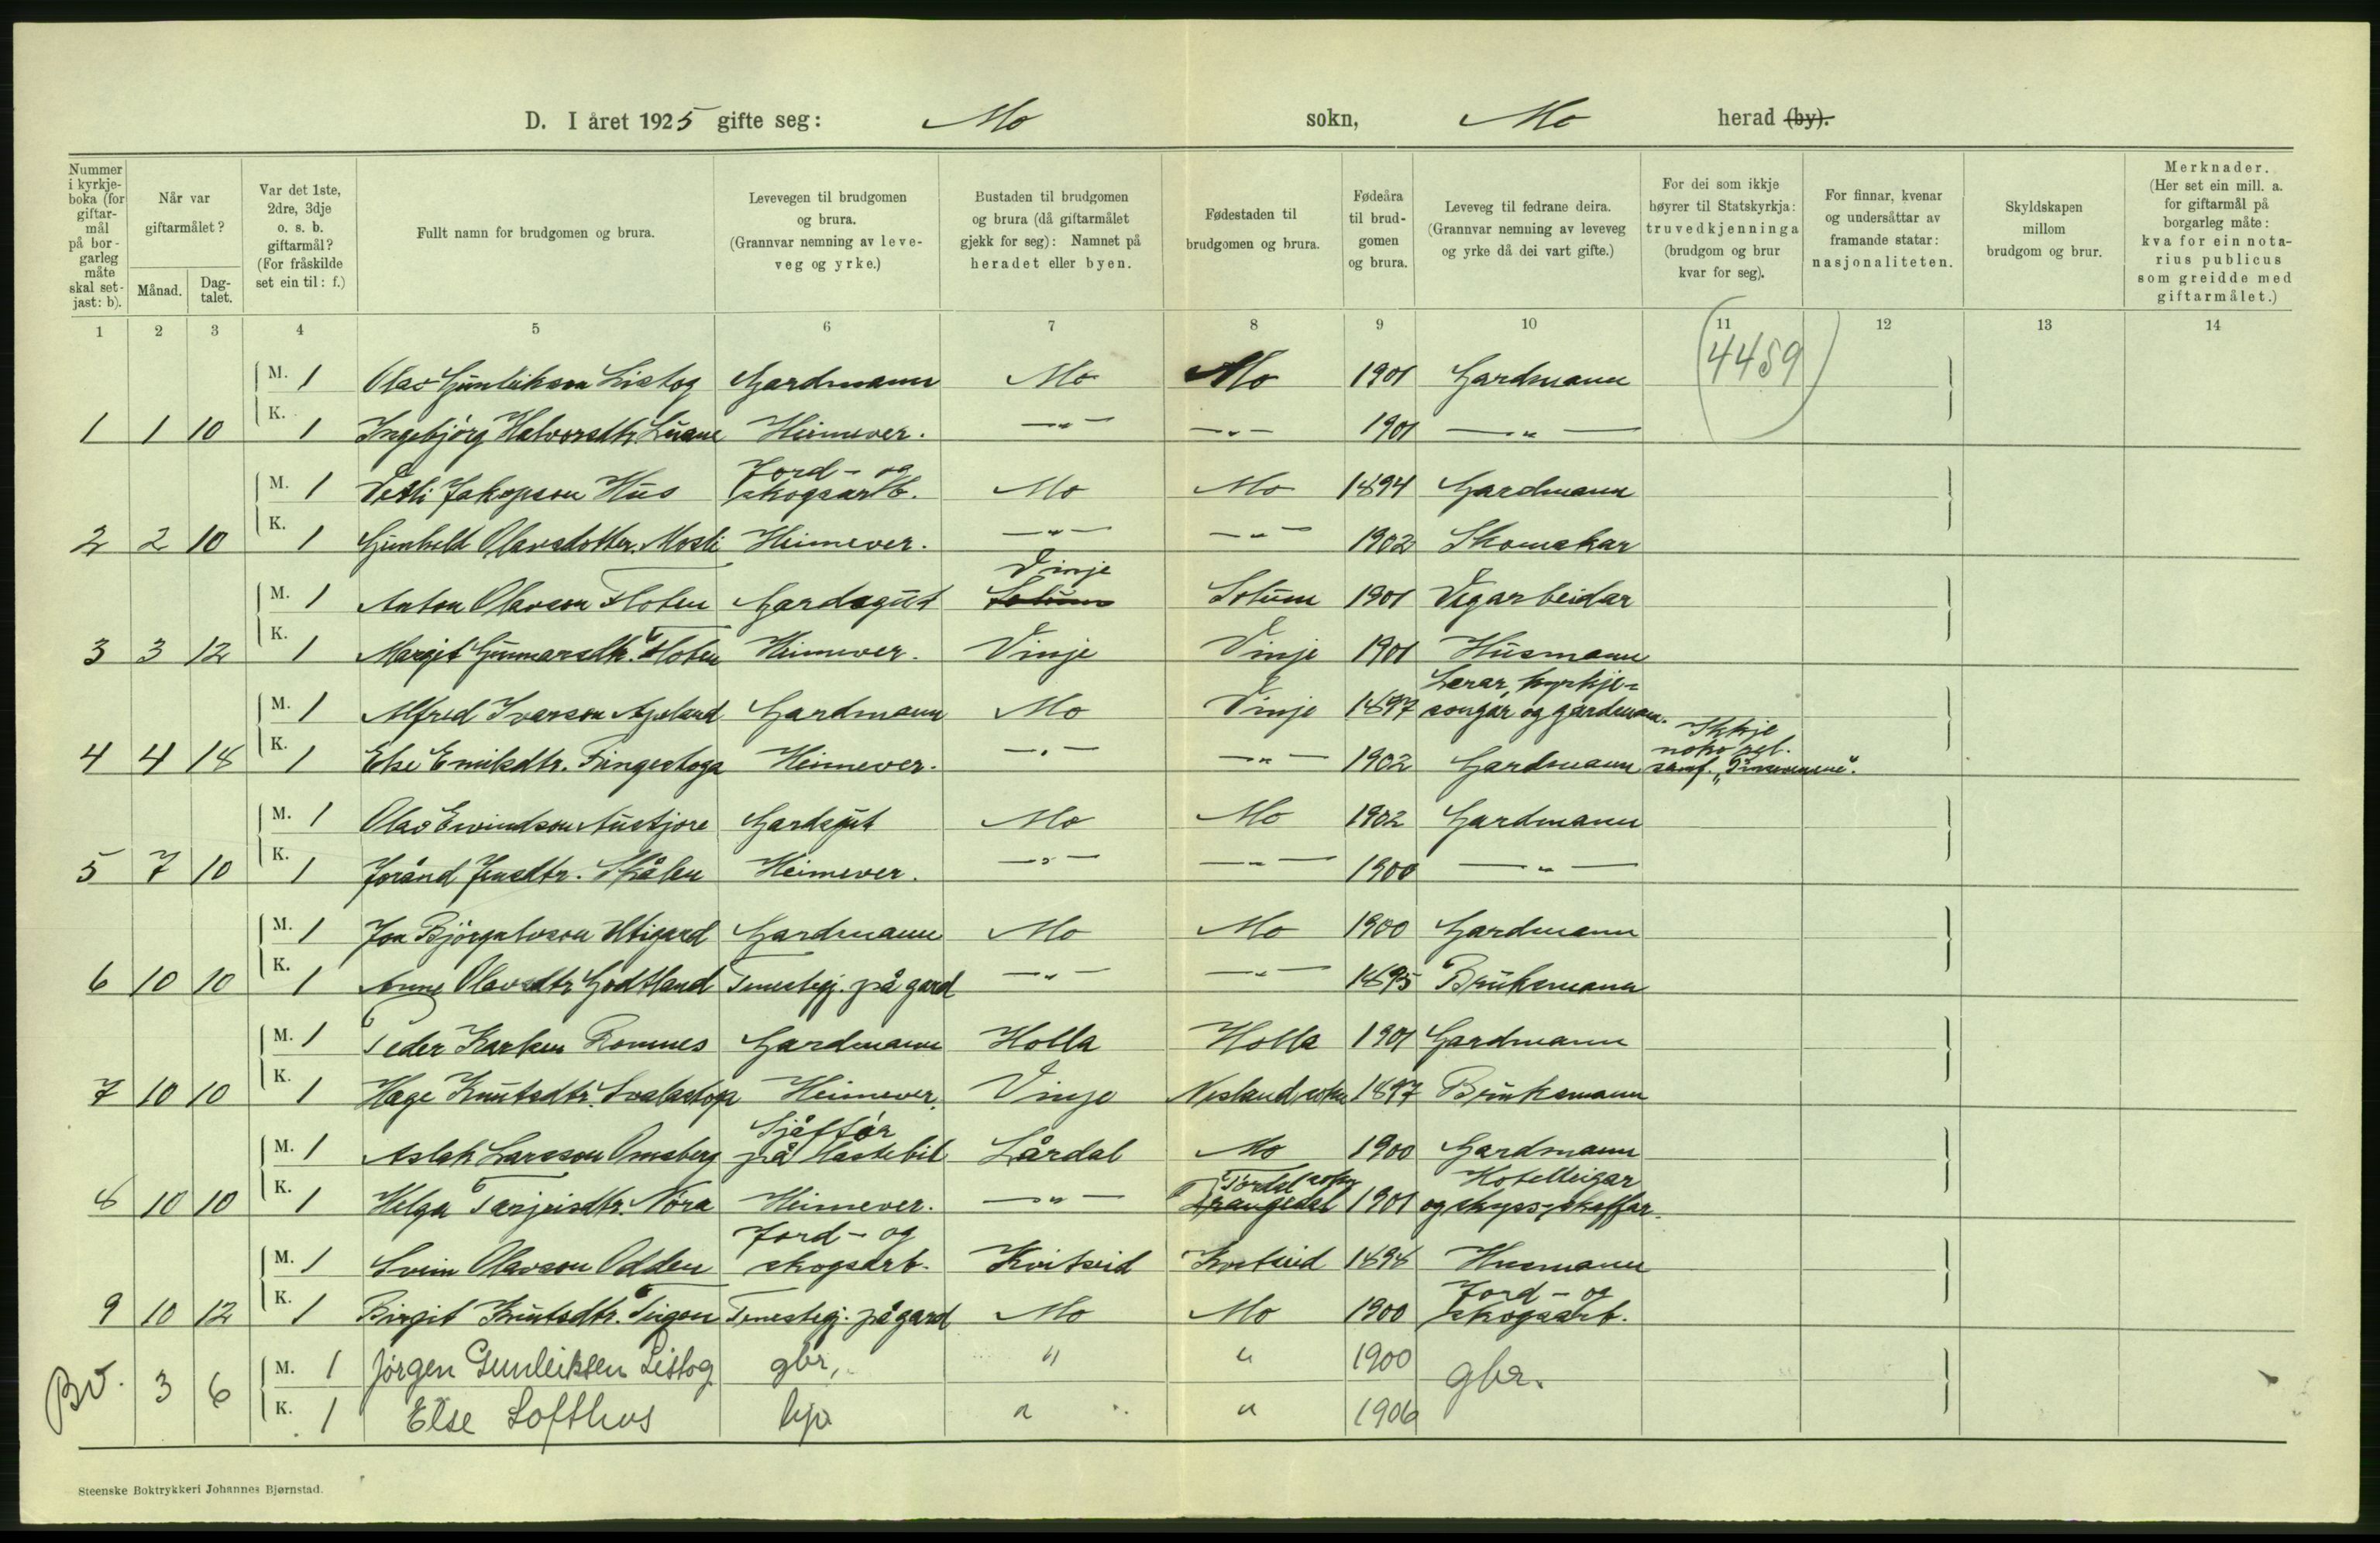 D. I året 1925 gifte seg: Mo sokn, Mo herad (by).
Nummer i kyrkje-boka (for giftar-mål på bor-garleg måte skal set-jast: b).
Når var giftarmålet?
Månad.
Dag-talet.
Var det 1ste, 2dre, 3dje o. s. b. giftarmål? (For fråskilde set ein til: f.)
Fullt namn for brudgomen og brura.
Levevegen til brudgomen og brura. (Grannvar nemning av leve-veg og yrke.)
Bustaden til brudgomen og brura (då giftarmålet gjekk for seg): Namnet på heradet eller byen.
Fødestaden til brudgomen og brura.
Fødeåra til brud-gomen og brura.
Leveveg til fedrane deira. (Grannvar nemning av leveveg og yrke då dei vart gifte.)
For dei som ikkje høyrer til Statskyrkja: truvedkjenninga (brudgom og brur kvar for seg).
For finnar, kvenar og undersåttar av framande statar: nasjonaliteten.
Skyldskapen millom brudgom og brur.
Merknader. (Her set ein mill. a. for giftarmål på borgarleg måte: kva for ein nota-rius publicus som greidde med giftarmålet.)
1 2 3 4 5 6 7 8 9 10 11 12 13 14
(4459)
M. 1 Olav Gunleikson Listog Gardmann Mo Mo 1901 Gardmann
1 1 10 K. 1 Ingebjørg Halvorsdtr. Gardmann Heimever. —"— —"— 1901 —"—
Jord- og
M. 1 Vetli Jakopson Hus skogsarb. Mo Mo 1894 Gardmann
2 2 10 K. 1 Gunhild Olavsdotter Mosli Heimever. —"— —"— 1902 Skomakar
Vinje
M. 1 Anton Olavson Floten Gardsgut Solum Solum 1901 Vegarbeidar
3 3 12 K. 1 Margit Gunnarsdtr. Floten Heimever. Vinje Vinje 1901 Husmann
Lærar, kyrkje-
M. 1 Alfred Ivarson Apeland Gardmann Mo Vinje 1897 songar og gardmann.
Ikkje
noko rel.
4 4 18 K. 1 Else Emilsdtr. Heimever. —"— —"— 1902 Gardmann samf. „Pinsevenene".
M. 1 Olav Eivindson Austjore Gardsgut Mo Mo 1902 Gardmann
5 7 10 K. 1 Jorånd Jensdtr. Skålen Heimever. —"— —"— 1900 —"—
M. 1 Jon Bjørgulvson Utigard Gardmann Mo Mo 1900 Gardmann
6 10 10 K. 1 Anne Olavsdtr. Godtland Tenestegj. på gard —"— —"— 1895 Bruksmann
M. 1 Peder Romnes Gardmann Holla Holla 1901 Gardmann
7 10 10 K. 1 Hæge Knutsdtr. Svalastoga Heimever. Vinje Nesland sokn 1897 Bruksmann
Sjåffør
M. 1 Aslak Larsson Omsberg på lastebil Lårdal Mo 1900 Gardmann
Tørdal sokn Hotelleigar
8 10 10 K. 1 Helga Tarjeisdtr. Nøra Heimever. —"— Drangedal 1901 og skyss-skaffar.
Jord- og
M. 1 Svein Olavson Odden skogsarb. Kviteseid Kviteseid 1898 Husmann
Jord- og
9 10 12 K. 1 Birgit Knutsdtr. Tenestegj. på gard Mo Mo 1900 skogsarb.
Bv. 3 6 M. 1 Jørgen Gunleiksen Listog gbr. " " 1900 gbr.
K. 1 Else Lofthus hj. " " 1906
Steenske Boktrykkeri Johannes Bjørnstad.